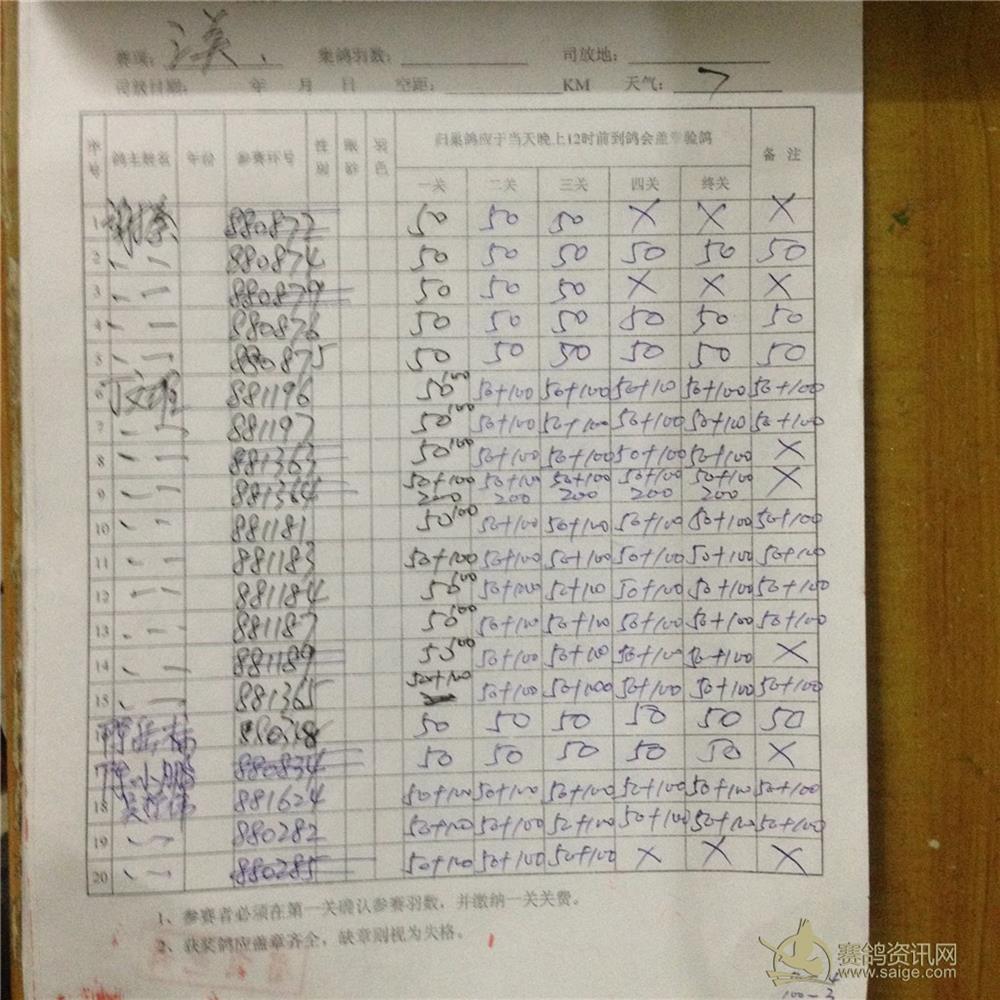 赛项： 集鸽羽数： 司放地：
司放日期： 年 月 日 空距： KM 天气：
序号 鸽主姓名 年份 参赛环号 性别 眼砂 羽色 归巢鸽应于当天晚上12时前到鸽会盖章验鸽 备 注
一关 二关 三关 四关 终关
1 880872 50 50 50 X X X
2 〃 880874 50 50 50 50 50 50
3 〃 880879 50 50 50 X X X
4 〃 880876 50 50 50 50 50 50
5 〃 880875 50 50 50 50 50 50
6 881196 50 100 50+100 50+100 50+100 50+100 50+100
7 〃 881197 50 100 50+100 50+100 50+100 50+100 50+100
8 〃 881363 50 100 50+100 50+100 50+100 50+100 X
9 〃 881364 50+100 200 50+100 200 50+100 200 50+100 200 50+100 200 X
10 〃 881181 50 100 50+100 50+100 50+100 50+100 50+100
11 〃 881183 50+100 50+100 50+100 50+100 50+100 50+100
12 〃 881184 50 100 50+100 50+100 50+100 50+100 50+100
13 〃 881187 50 100 50+100 50+100 50+100 50+100 50+100
14 〃 881189 50 100 50+100 50+100 50+100 50+100 X
15 〃 881365 50+100 50+100 50+100 50+100 50+100 50+100
50 50 50 50 50 50
陈小鹏 880834 50 50 50 50 50 X
18 881624 50+100 50+100 50+100 50+100 50+100 50+100
19 〃 880282 50+100 50+100 50+100 50+100 50+100 50+100
20 〃 880285 50+100 50+100 50+100 X X X
1、参赛者必须在第一关确认参赛羽数，并缴纳一关关费。
2、获奖鸽应盖章齐全，缺章则视为失格。
赛鸽资讯网
www.saige.com
100-3